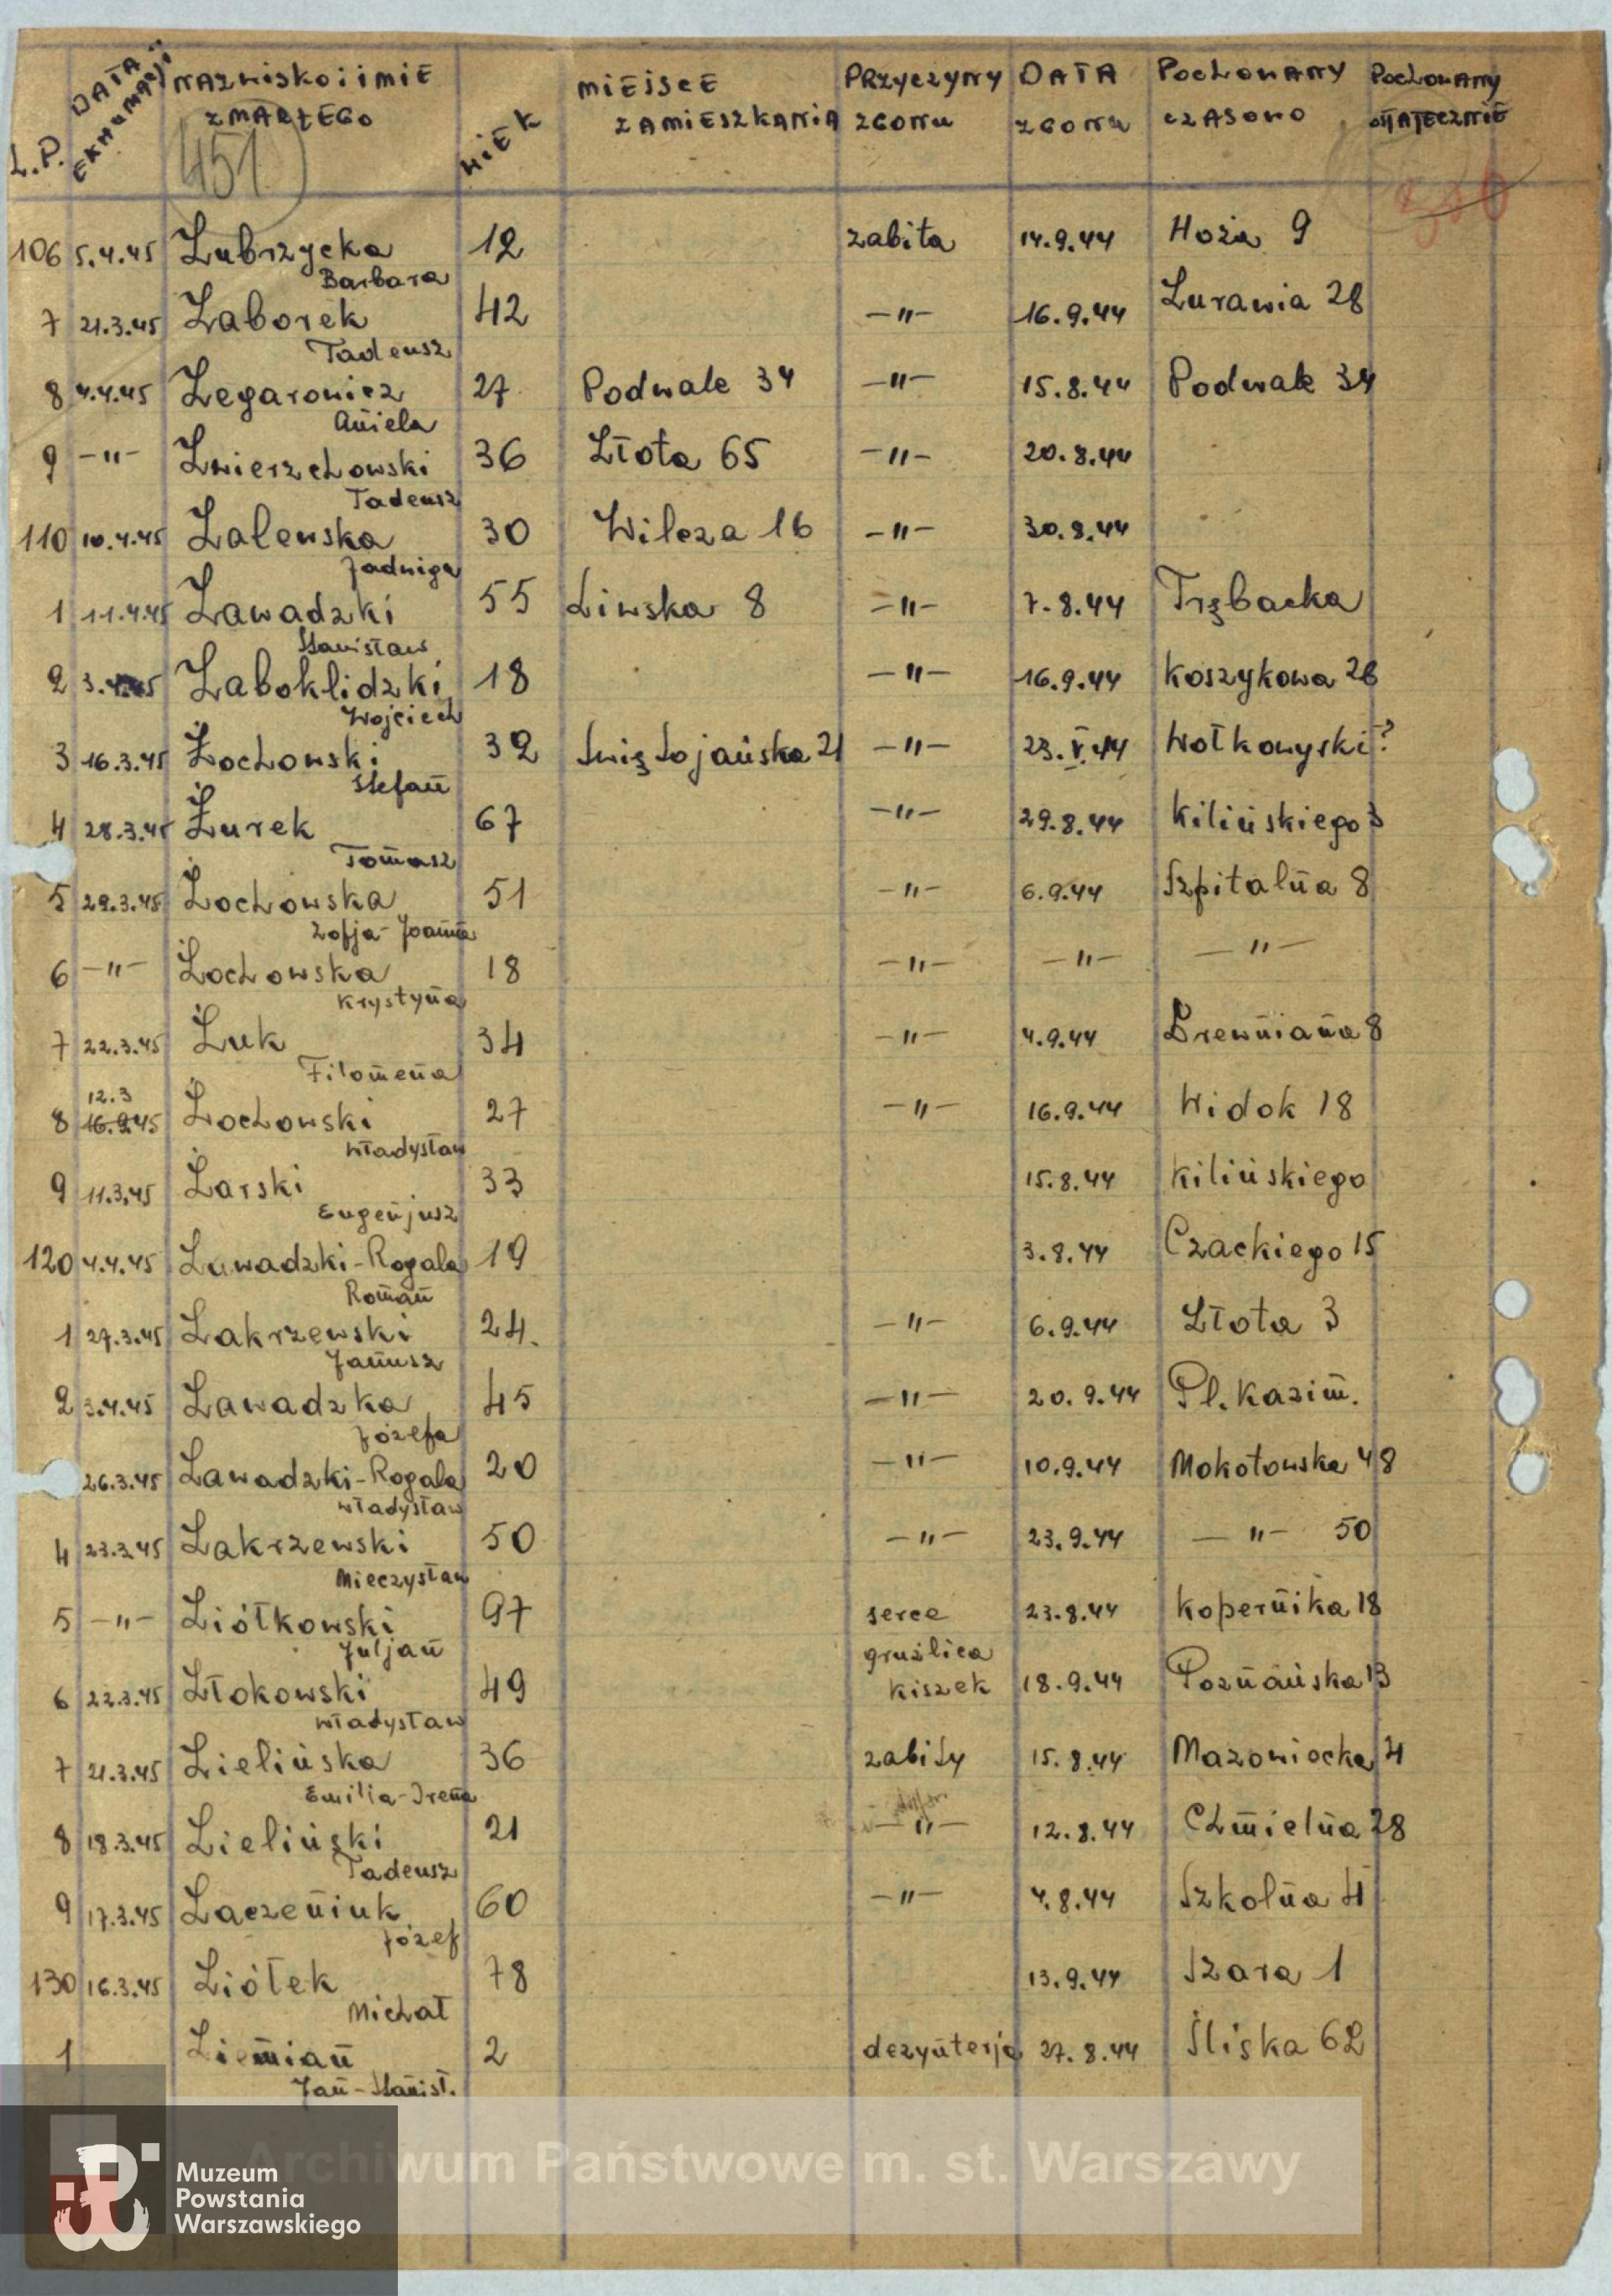 L.P. DATA EKHUMACJI NAZWISKO i IMIĘ ZMARŁEGO WIEK MIEJSCE ZAMIESZKANIA PRZYCZYNY ZGONU DATA ZGONU POCHOWANY CZASOWO POCHOWANY OSTATECZNIE
451
106 5.4.45 Zubrzycka 12 zabita 14.9.44 Hoża 9
Barbara
7 21.3.45 Zaborek 42 —"— 16.9.44 Żurawia 28
Tadeusz
8 4.4.45 Zegarowicz 27 Podwale 34 —"— 15.8.44 Podwale 34
Aniela
9 —"— Zwierzchowski 36 Złota 65 —"— 20.8.44
Tadeusz
110 10.4.45 Zalewska 30 Wilcza 16 —"— 30.8.44
Jadwiga
1 11.4.45 Zawadzki 55 Liwska 8 —"— 7.8.44 Trębacka
Stanisław
2 Zaboklidzki 18 —"— 16.9.44 Koszykowa 28
Wojciech
3 16.3.45 Żochowski 32 Świętojańska 21 —"— 23.V.44 Wołkowyski?
Stefan
4 28.3.45 Żurek 67 —"— 29.8.44 Kilińskiego 3
Tomasz
5 29.3.45 Żochowska 51 —"— 6.9.44 Szpitalna 8
Zofja-Joanna
6 —"— Żochowska 18 —"— —"— —"—
Krystyna
7 22.3.45 Żuk 34 —"— 4.9.44 Drewniana 8
Filomena
12.3
8 16.9.45 Żochowski 27 —"— 16.9.44 Widok 18
Władysław
9 11.3.45 Żarski 33 15.8.44 Kilińskiego
Eugenjusz
120 4.4.45 Zawadzki-Rogala 19 3.8.44 Czackiego 15
Roman
1 27.3.45 Zakrzewski 24. —"— 6.9.44 Złota 3
Janusz
2 3.4.45 Zawadzka 45 —"— 20.9.44 Pl. Kazim.
Józefa
26.3.45 Zawadzki-Rogala 20 —"— 10.9.44 Mokotowska 48
Władysław
4 23.3.45 Zakrzewski 50 —"— 23.9.44 —"— 50
Mieczysław
5 —"— Ziółkowski 97 serce 23.8.44 Kopernika 18
Juljan
gruźlica
6 22.3.45 Złokowski 49 kiszek 18.9.44 Poznańska 13
Władysław
7 21.3.45 Zielińska 36 zabity 15.8.44 Mazowiecka 4
Emilia-Irena
8 18.3.45 Zieliński 21 —"— 12.8.44 Chmielna 28
Tadeusz
9 17.3.45 Zaczeniuk 60 —"— 4.8.44 Szkolna 4
Józef
130 16.3.45 Ziółek 78 13.9.44 Szara 1
Michał
1 Ziemian 2 dezynterja 27.8.44 Śliska 62
Jan-Stanisł.
Archiwum Państwowe m. st. Warszawy
Muzeum
Powstania
Warszawskiego